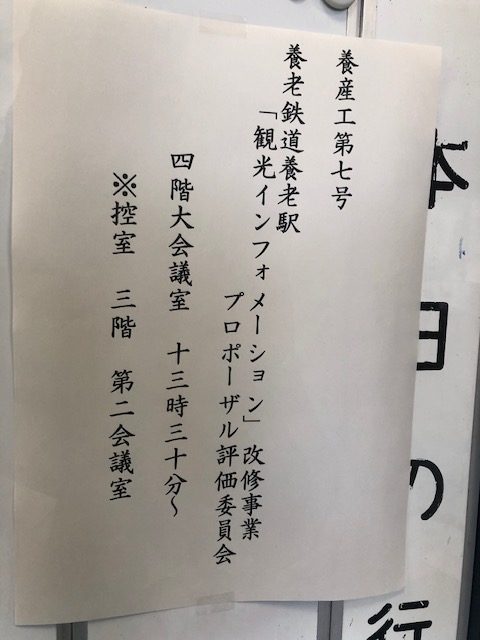 養産工第七号
養老鉄道養老駅
「観光インフォメーション」改修事業
プロポーザル評価委員会
四階大会議室 十三時三十分～
※控室 三階 第二会議室
本日の行